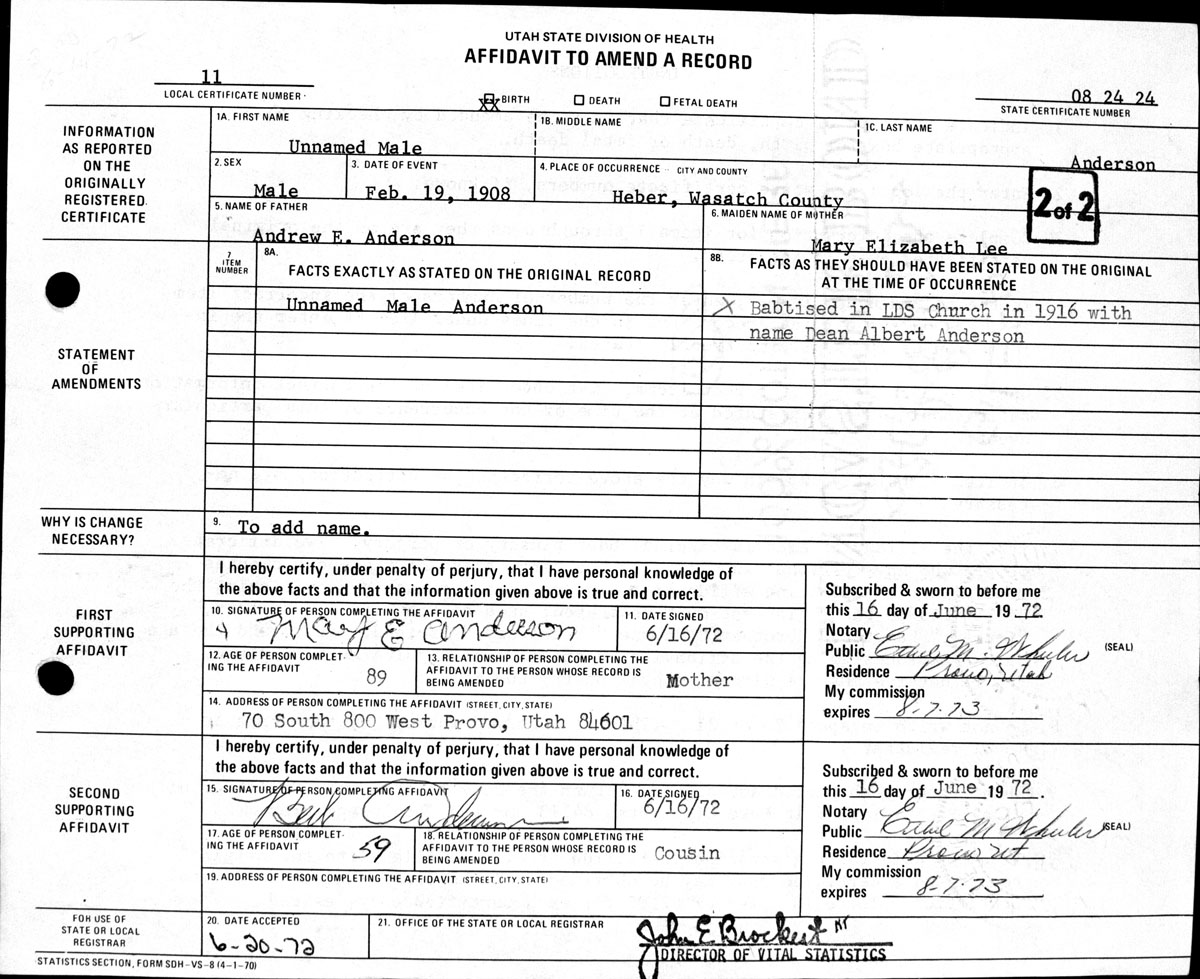 UTAH STATE DIVISION OF HEALTH
AFFIDAVIT TO AMEND A RECORD
11
LOCAL CERTIFICATE NUMBER
XX BIRTH DEATH FETAL DEATH
08 24 24
STATE CERTIFICATE NUMBER
INFORMATION
AS REPORTED
ON THE
ORIGINALLY
REGISTERED
CERTIFICATE
1A. FIRST NAME
Unnamed Male
1B. MIDDLE NAME
1C. LAST NAME
Anderson
2. SEX
Male
3. DATE OF EVENT
Feb. 19, 1908
4. PLACE OF OCCURRENCE - CITY AND COUNTY
Heber, Wasatch County
2 of 2
5. NAME OF FATHER
Andrew E. Anderson
6. MAIDEN NAME OF MOTHER
Mary Elizabeth Lee
STATEMENT
OF
AMENDMENTS
7
ITEM
NUMBER
8A.
FACTS EXACTLY AS STATED ON THE ORIGINAL RECORD
8B.
FACTS AS THEY SHOULD HAVE BEEN STATED ON THE ORIGINAL
AT THE TIME OF OCCURRENCE
Unnamed Male Anderson
X Babtised in LDS Church in 1916 with
name Dean Albert Anderson
WHY IS CHANGE
NECESSARY?
9. To add name.
FIRST
SUPPORTING
AFFIDAVIT
I hereby certify, under penalty of perjury, that I have personal knowledge of
the above facts and that the information given above is true and correct.
10. SIGNATURE OF PERSON COMPLETING THE AFFIDAVIT
Mary E Anderson
11. DATE SIGNED
6/16/72
12. AGE OF PERSON COMPLET-
ING THE AFFIDAVIT
89
13. RELATIONSHIP OF PERSON COMPLETING THE
AFFIDAVIT TO THE PERSON WHOSE RECORD IS
BEING AMENDED
Mother
14. ADDRESS OF PERSON COMPLETING THE AFFIDAVIT (STREET, CITY, STATE)
70 South 800 West Provo, Utah 84601
Subscribed & sworn to before me
this 16 day of June 19 72
Notary
Public (SEAL)
Residence Provo, Utah
My commission
expires 8-7-73
SECOND
SUPPORTING
AFFIDAVIT
I hereby certify, under penalty of perjury, that I have personal knowledge of
the above facts and that the information given above is true and correct.
15. SIGNATURE OF PERSON COMPLETING AFFIDAVIT
16. DATE SIGNED
6/16/72
17. AGE OF PERSON COMPLET-
ING THE AFFIDAVIT
59
18. RELATIONSHIP OF PERSON COMPLETING THE
AFFIDAVIT TO THE PERSON WHOSE RECORD IS
BEING AMENDED
Cousin
19. ADDRESS OF PERSON COMPLETING THE AFFIDAVIT (STREET, CITY, STATE)
Subscribed & sworn to before me
this 16 day of June 19 72.
Notary
Public (SEAL)
Residence Provo, Ut
My commission
expires 8-7-73
FOR USE OF
STATE OR LOCAL
REGISTRAR
20. DATE ACCEPTED
6-20-72
21. OFFICE OF THE STATE OR LOCAL REGISTRAR
John E Brockert
DIRECTOR OF VITAL STATISTICS
STATISTICS SECTION, FORM SDH-VS-8 (4-1-70)